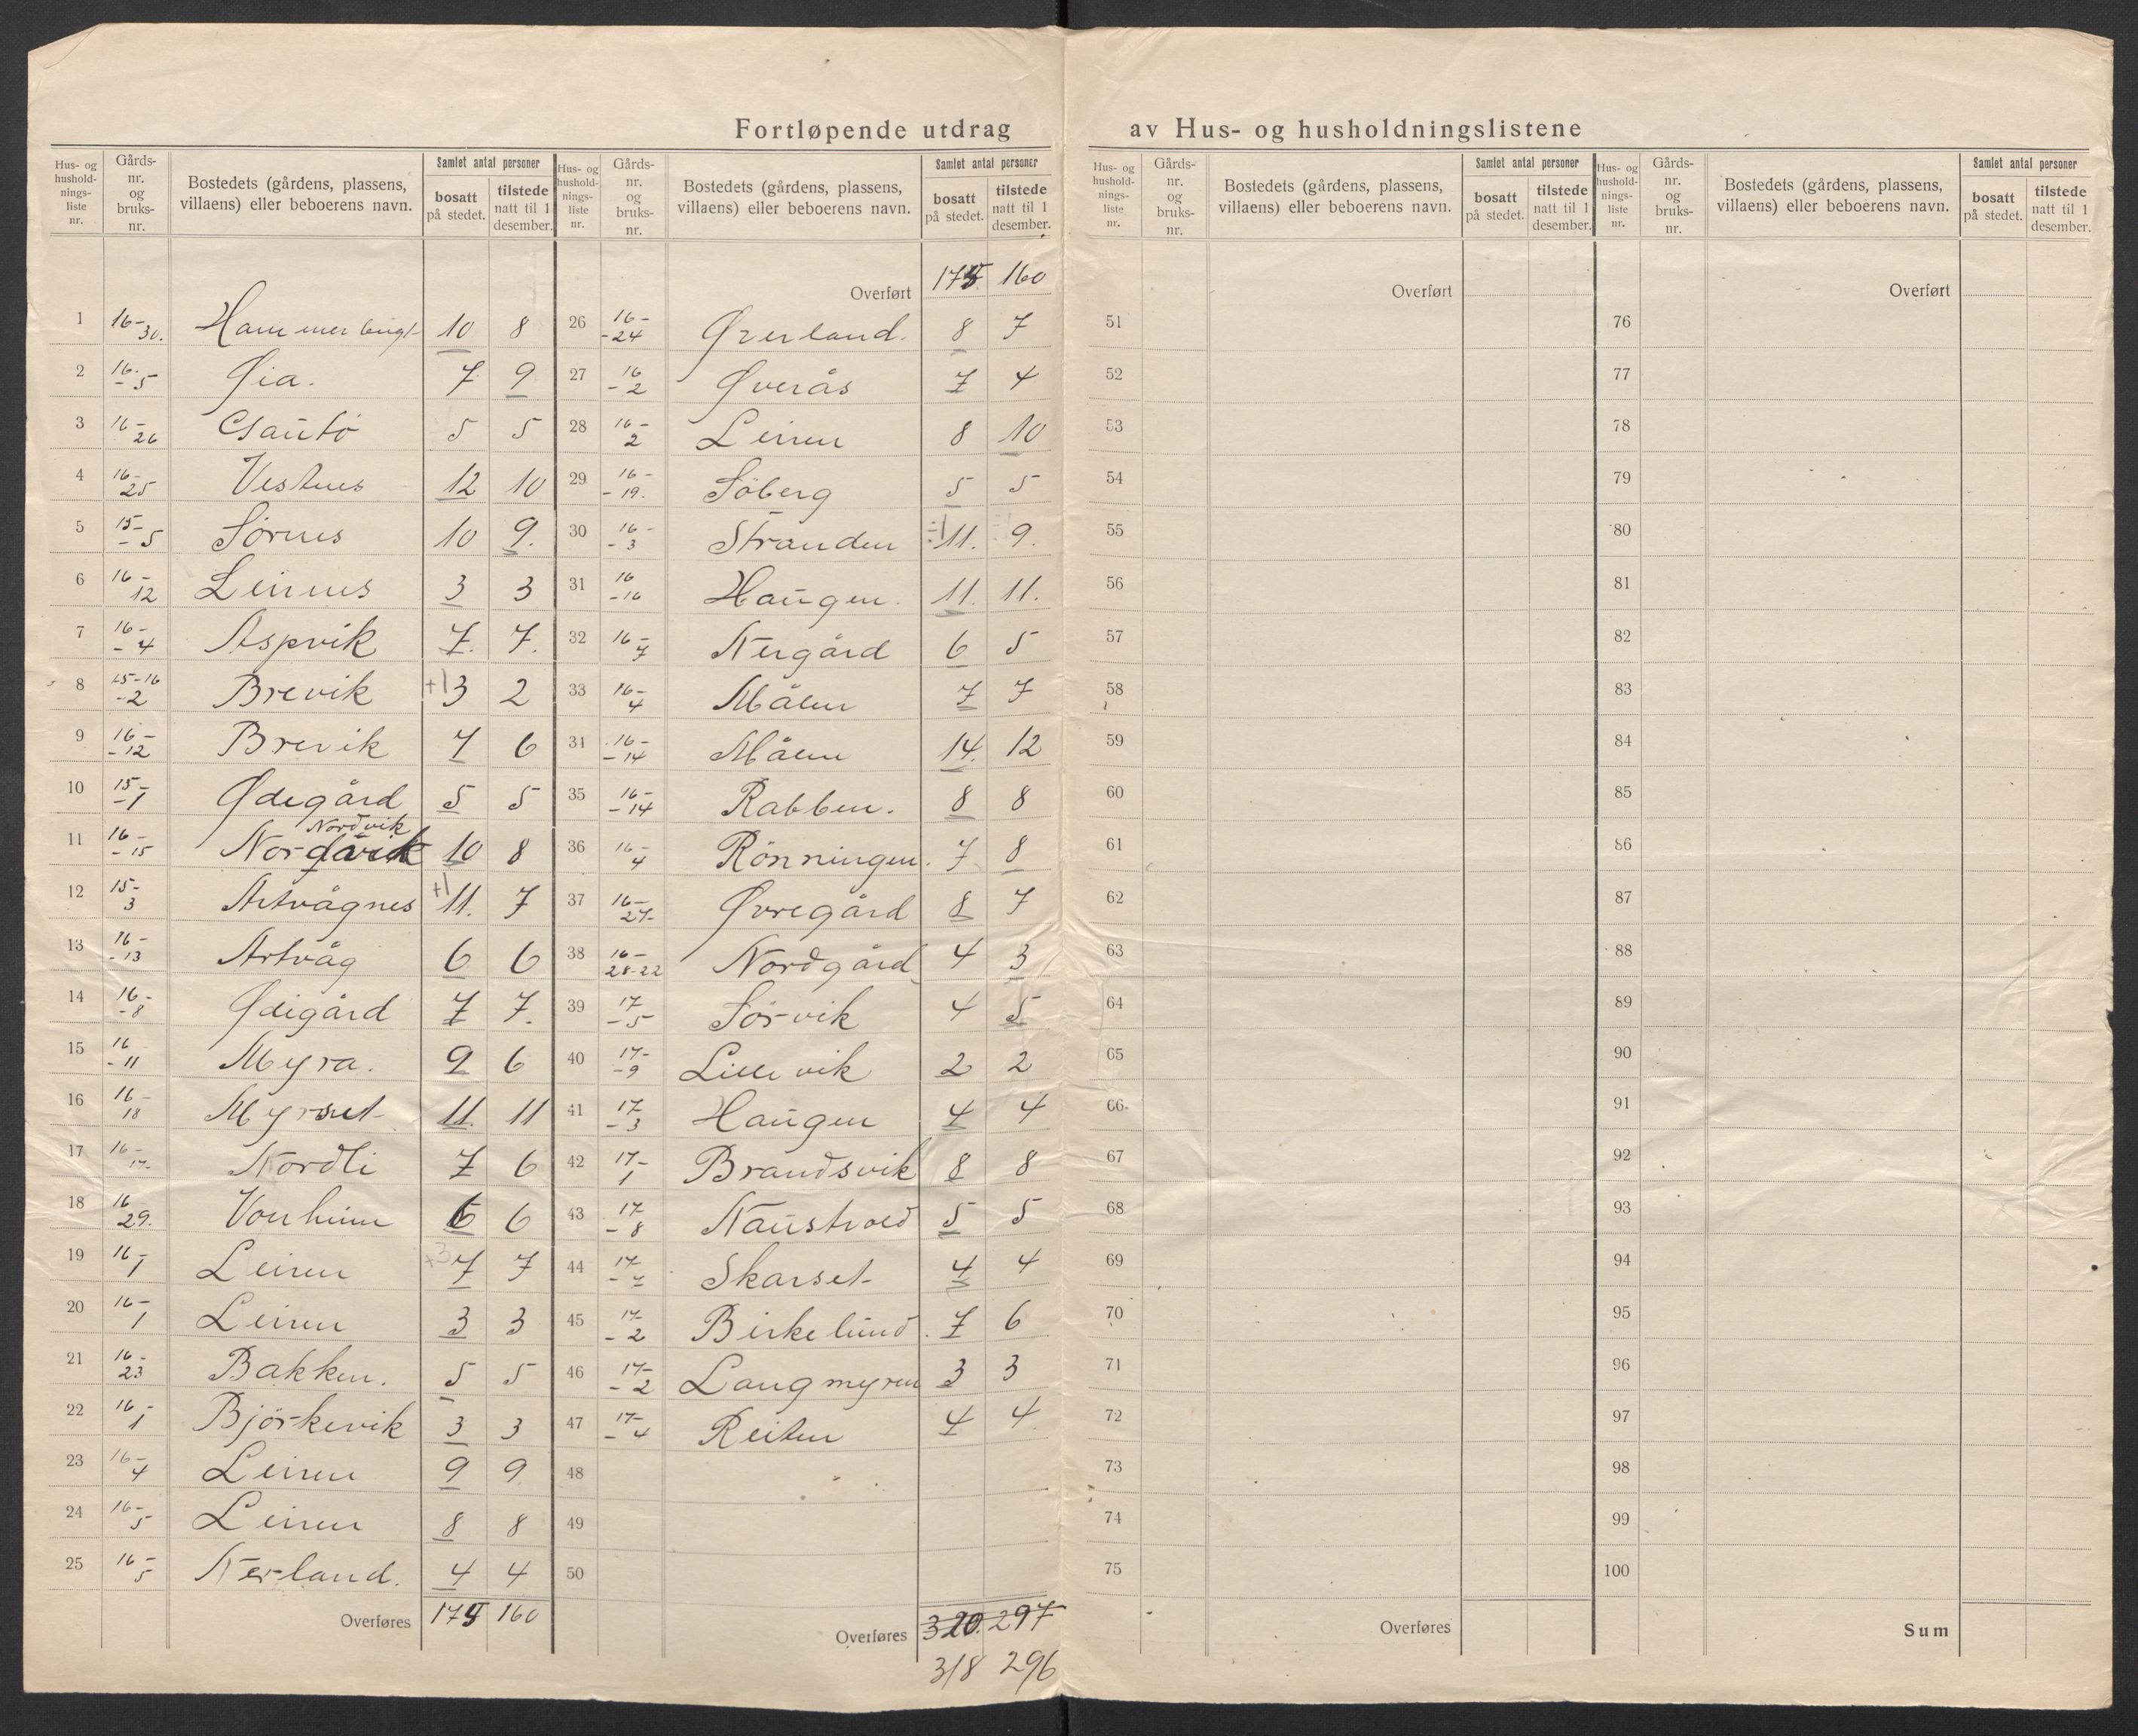 Fortløpende utdrag av Hus- og husholdningslistene
Hus- og husholdnings-liste nr. | Gårds-nr. og bruks-nr. | Bostedets (gårdens, plassens, villaens) eller beboerens navn. | Samlet antal personer | bosatt på stedet. | tilstede natt til 1 desember.
1 16-30. 10 8
2 16-5 Øia. 7 9
3 16-26 5 5
4 16-25 Vestnes 12 10
5 15-5 Sørnes 10 9.
6 16-12 Leirnes 3 3
7 16-4 Aspvik 7. 7.
8 15-16-2 Brevik +1 3 2
9 16-12 Brevik 7 6
10 15-1 Ødegård 5 5
11 16-15 Nordvik 10 8
12 15-3 Artvågnes +1 11. 7
13 16-13 Artvåg 6 6
14 16-8 Ødegård 7 7.
15 16-11 Myra. 9 6
16 16-18 Myrset 11. 11
17 16-17- Nordli 7 6
18 16-29. Vonheim 6 6
19 16-1 Leiren +3 7 7
20 16-1 Leiren 3 3
21 16-23 Bakken. 5 5
22 16-1 Björkevik 3 3
23 16-4 Leiren 9 9
24 16-5 Leiren 8 8
25 16-5 Nerland. 4 4
Overføres 175 160
Hus- og husholdnings-liste nr. | Gårds-nr. og bruks-nr. | Bostedets (gårdens, plassens, villaens) eller beboerens navn. | Samlet antal personer | bosatt på stedet. | tilstede natt til 1 desember.
Overført 175 160
26 16-24 Øverland. 8 7
27 16-2 Øverås 7 4
28 16-2 Leiren 8 10
29 16-19. Söberg 5 5
30 16-3 Stranden 11. 9.
31 16-16 Haugen. 11. 11.
32 16-7 Nergård 6 5
33 16-4 Målen 7 7
34 16-14 Målen 14. 12
35 16-14 Rabben. 8 8
36 16-4 Rönningen. 7 8
37 16-27- Øvregård 8 7
38 16-28-22 Nordgård 4 3
39 17-5 Sörvik 4 5
40 17-9 Lillevik 2 2
41 17-3 Haugen 4 4
42 17-1 Brandsvik 8 8
43 17-8 Naustvold 5 5
44 17-7 Skarset 4 4
45 17-2 Birkelund. 7 6
46 17-2 Langmyren 3 3
47 17-4 Reiten 4 4
48
49
50
Overføres 320. 297
318 296
Hus- og husholdnings-liste nr. | Gårds-nr. og bruks-nr. | Bostedets (gårdens, plassens, villaens) eller beboerens navn. | Samlet antal personer | bosatt på stedet. | tilstede natt til 1 desember.
Overført
51
52
53
54
55
56
57
58
59
60
61
62
63
64
65
66
67
68
69
70
71
72
73
74
75
Overføres
Hus- og husholdnings-liste nr. | Gårds-nr. og bruks-nr. | Bostedets (gårdens, plassens, villaens) eller beboerens navn. | Samlet antal personer | bosatt på stedet. | tilstede natt til 1 desember.
Overført
76
77
78
79
80
81
82
83
84
85
86
87
88
89
90
91
92
93
94
95
96
97
98
99
100
Sum